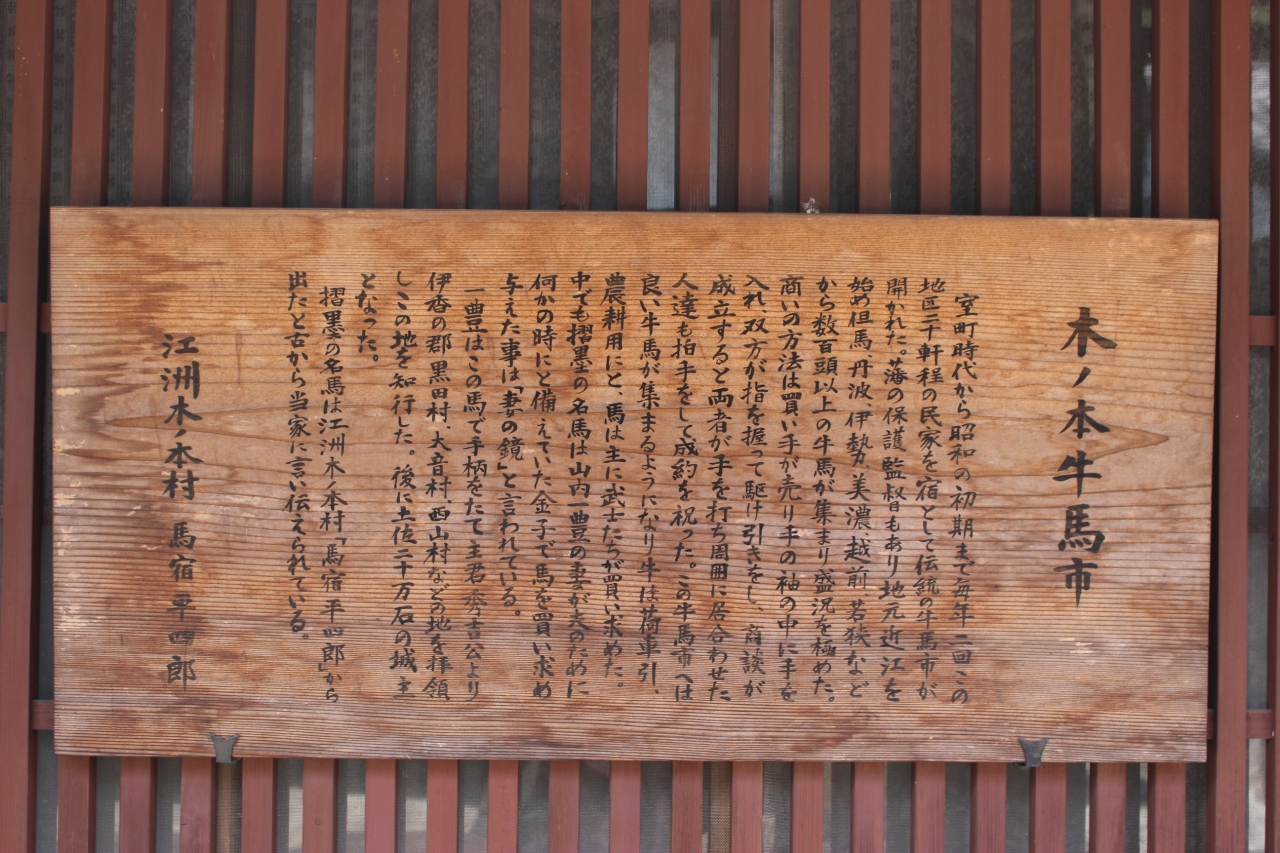 木ノ本牛馬市
室町時代から昭和の初期まで毎年二回この
地区二十軒程の民家を宿として伝統の牛馬市が
開かれた。藩の保護監督もあり地元近江を
始め但馬、丹波、伊勢、美濃、越前、若狭など
から数百頭以上の牛馬が集まり盛況を極めた。
商いの方法は買い手が売り手の袖の中に手を
入れ、双方が指を握って駆け引きをし、商談が
成立すると両者が手を打ち周囲に居合わせた
人達も拍手をして成約を祝った。この牛馬市へは
良い牛馬が集まるようになり牛は荷車引、
農耕用にと、馬は主に武士たちが買い求めた。
中でも摺墨の名馬は山内一豊の妻が夫のために
何かの時にと備えていた金子で馬を買い求め
与えた事は「妻の鏡」と言われている。
一豊はこの馬で手柄をたて主君秀吉公より
伊香の郡黒田村、大音村、西山村などの地を拝領
しこの地を知行した。後に土佐二十万石の城主
となった。
摺墨の名馬は江洲木ノ本村「馬宿平四郎」から
出たと古から当家に言い伝えられている。
江洲木ノ本村 馬宿平四郎